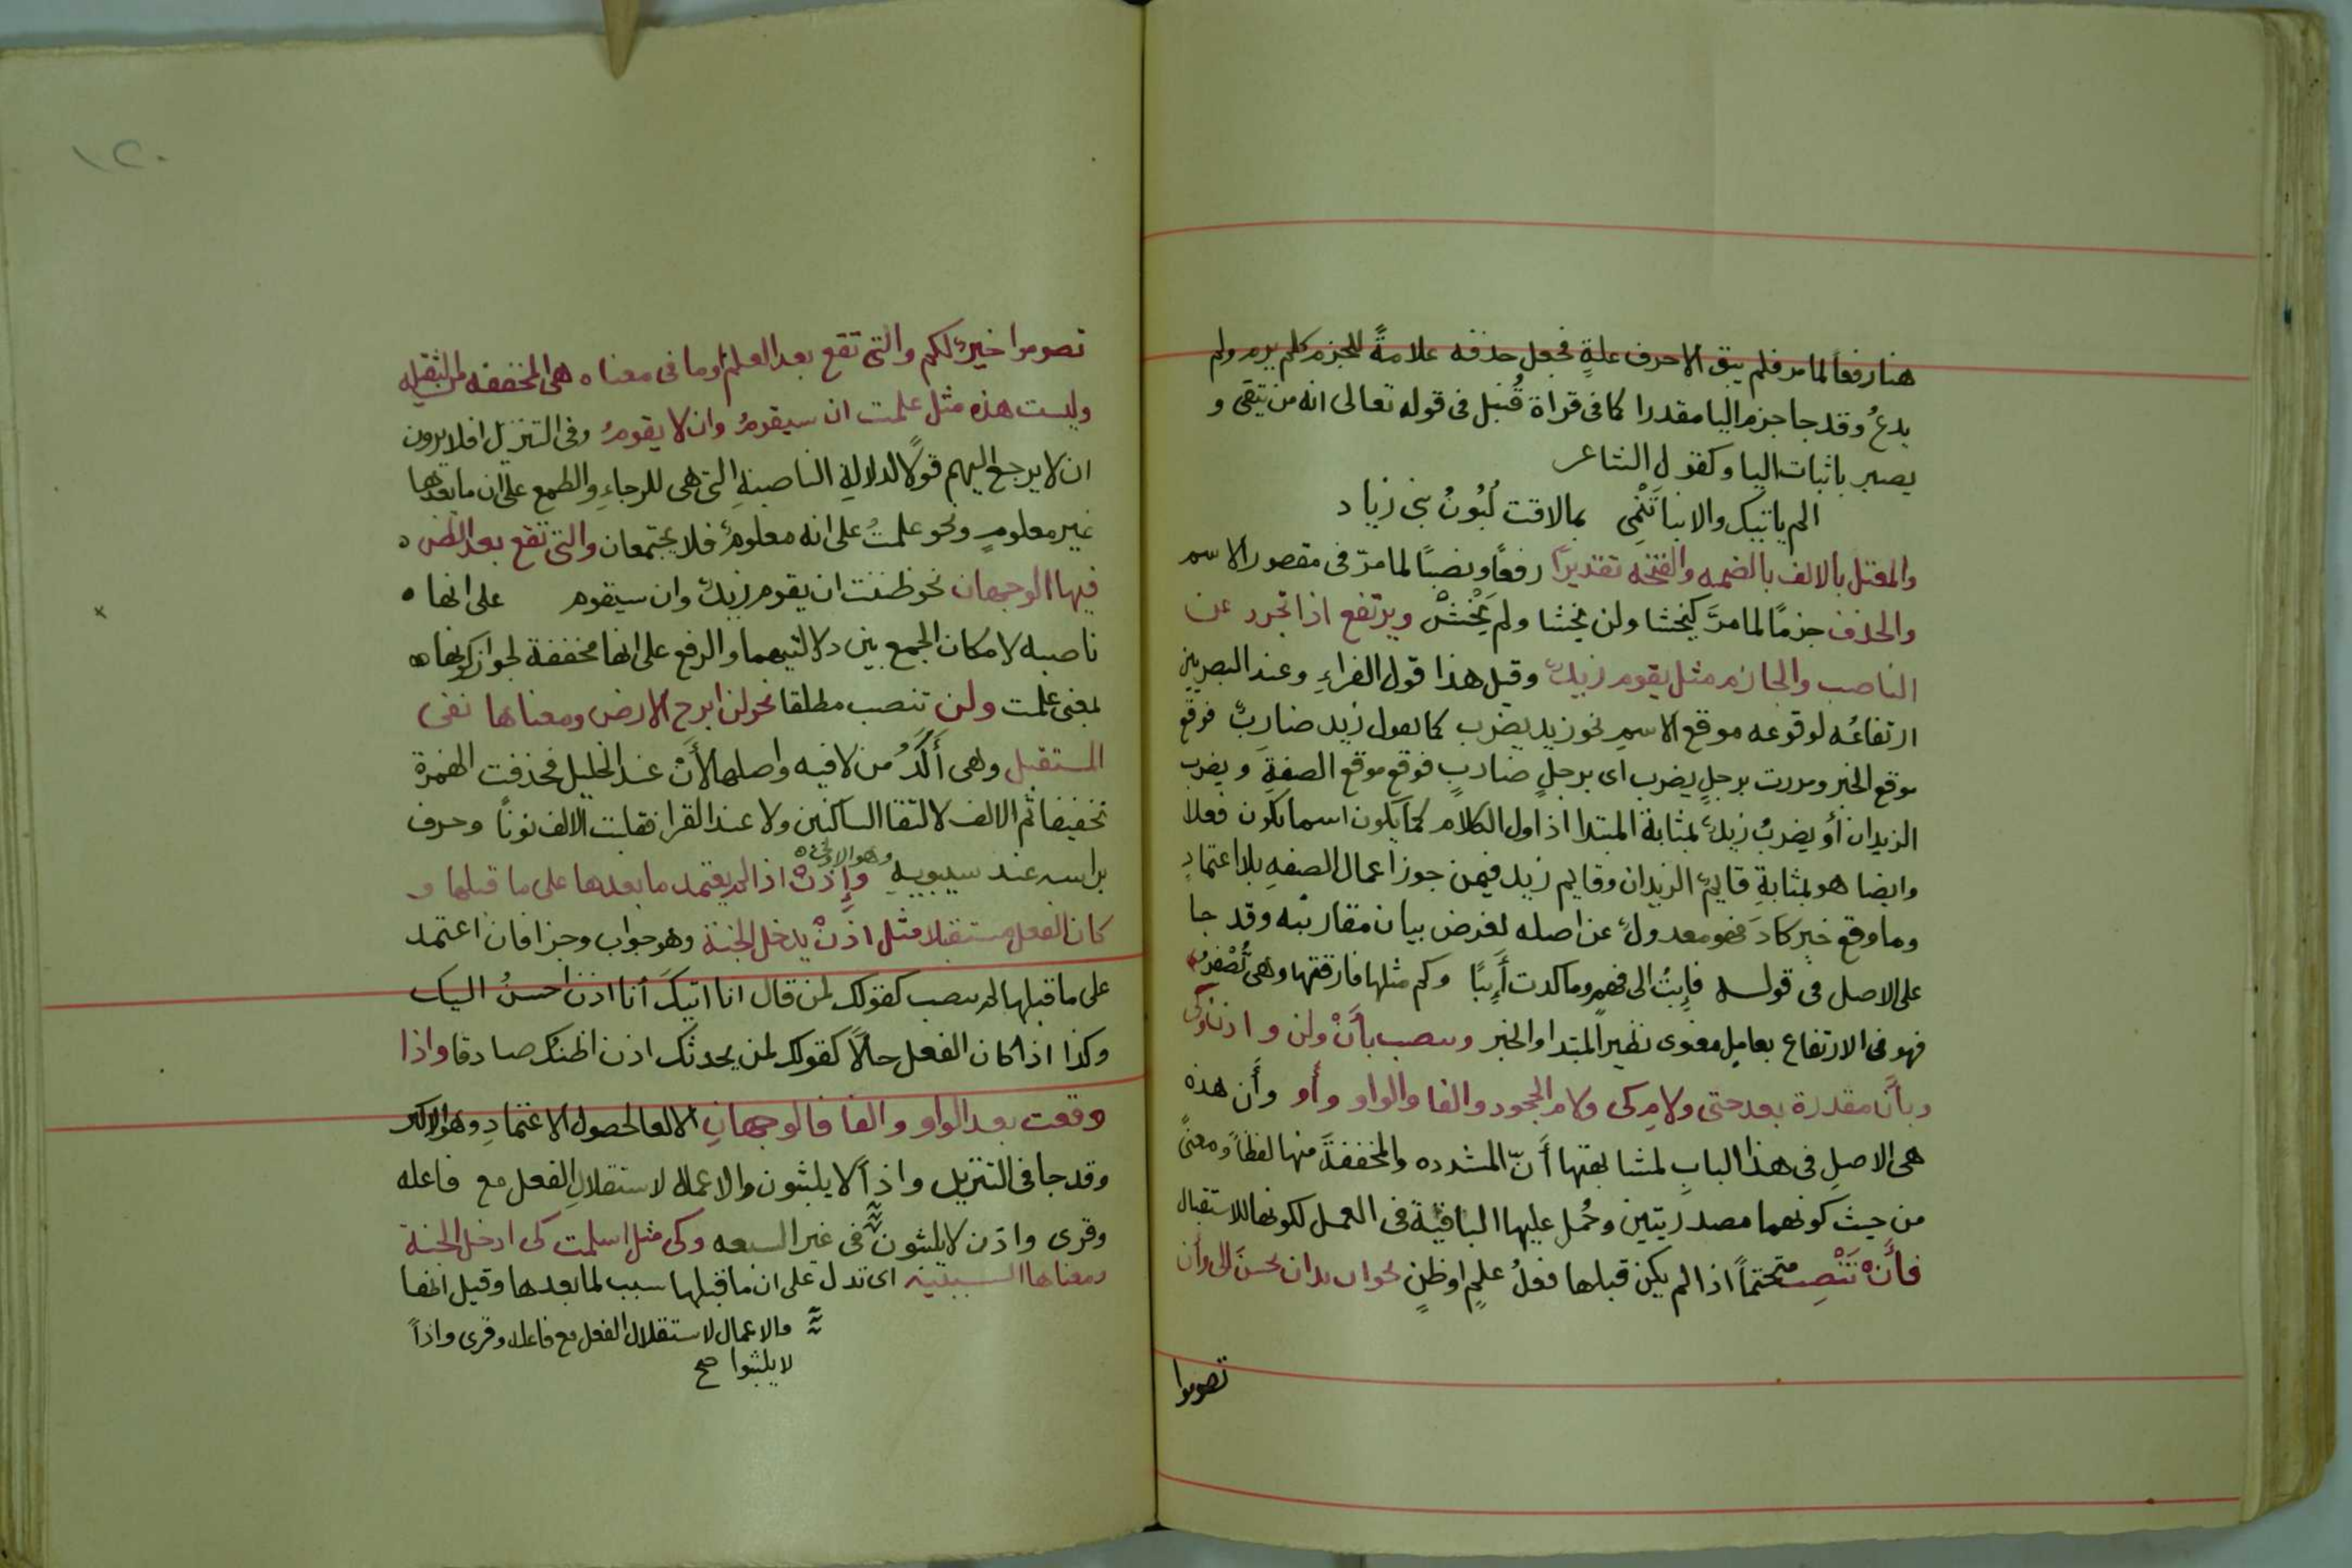 هنا رفعاً لما مر فلم يبق الا حرف علةٍ فجعل حذفه علامةً للجزم كلم يرم ولم
يدعُ وقد جا جزم اليا مقدرا كما فى قراة قُنبل فى قوله تعالى انه من يتقى و
يصبر باثبات اليا وكقول الشاعر
الم ياتيك والانبا تَنْمِى بمالاقت لَبُونُ بنى زياد
والمعتل بالالف بالضمه والفتحه تقديرًا رفعًا ونصبًا لما مرّ فى مقصور الاسم
والحذف جزمًا لما مرَّ كيخشا ولن يخشا ولم يَخْشَ ويرتفع اذا تجرد عن
الناصب والجازم مثل يقوم زيدٌ وقيل هذا قول الفراءِ وعند البصريين
ارتفاعُه لوقوعه موقع الاسمِ نحو زيد يضرب كما تقول زيد ضاربٌ فوقع
موقع الخبر ومررت برجلٍ يضرب اى برجلٍ ضاربٍ فوقع موقع الصفةِ ويضرب
الزيدان أو يضربُ زيدٌ بمثابة المبتدا اذ اول الكلام كما يكون اسما يكون فعلاً
وايضا هو بمثابةِ قايمٌ الزيدان وقايم زيد فيمن جوز اعمال الصفهِ بلا اعتمادٍ
وما وقع خبر كادَ فهو معدولٌ عن اصله لغرض بيان مقاربته وقد جا
على الاصل فى قوله فأبتُ الى فهمٍ وما كدت أيبًا وكم مثلها فارقتها وهى تُصْفِرُ
فهو فى الارتفاع بعاملٍ معنوى نظير المبتدا والخبر وينصب بأنْ ولن واذن وكى
وبأن مقدرة بعد حتى ولام كى ولام الجحود والفا والواو وأو وأن هذه
هى الاصل فى هذا البابِ لمشابهتها أنّ المشدده والمخففةَ منها لفظاً ومعنىً
من حيث كونهما مصدريتين وحُمل عليها الباقية فى العمل لكونها للاستقبال
فأنْ تَنْصِب متحتماً اذا لم يكن قبلها فعلُ علمٍ او ظنٍ نحو اريد ان تحسنَ الى وأن
تصوموا
١٢٠
تصوموا خيرٌ لكم والتى تقع بعد العلم أو ما فى معناه هى المخففه من الثقيله
وليست هذه مثل علمت ان سيقومُ وان لا يقومُ وفى التنزيل افلا يرون
ان لا يرجع اليهم قولًا لدلالةِ الناصبةِ التى هى للرجاءِ والطمعِ على ان ما بعدها
غير معلومٍ ونحو علمتُ على انه معلومٌ فلا يجتمعان والتى تقع بعد الظن ه
فيها الوجهان نحو ظننت ان يقوم زيدٌ وان سيقوم على انها ه
ناصبه لامكان الجمع بين دلالتيهما والرفع على انها مخففة لجواز كونها ه
بمعنى علمت ولن تنصب مطلقا نحو لن ابرح الارض ومعناها نفى
المستقبل وهى أَكَدُ من لا فيه واصلها لأَنْ عند الخليل فحذفت الهمزة
تخفيفا ثم الالف لالتقا الساكنين ولا عند الفرا فقلبت الالف نونًا وحرف
براسه عند سيبويهِ وهو الاولى ه وإذنْ اذا لم يعتمد ما بعدها على ما قبلها و
كان الفعل مستقبلا مثل اذنْ يدخل الجنة وهو جواب وجزا فان اعتمد
على ما قبلها لم ينصب كقولك لمن قال انا اتيكَ أنا اذن احسنُ اليك
وكذا اذا كان الفعل حالًا كقولك لمن يحدثك اذن اظنك صادقا واذا
وقعت بعد الواو والفا فالوجهانِ الالغا لحصول الاعتمادِ وهو الاكثر
وقد جا فى التنزيل واذاً لا يلبثون والاعمال لاستقلالِ الفعل مع فاعله
وقرى واذن لا يلبثون فى غير السبعه وكى مثل اسلمت كى ادخل الجنة
ومعناها السببية اى تدل على ان ما قبلها سبب لما بعدها وقيل انها
والاعمال لاستقلال الفعل مع فاعله وقرى واذاً
لا يلبثوا صح